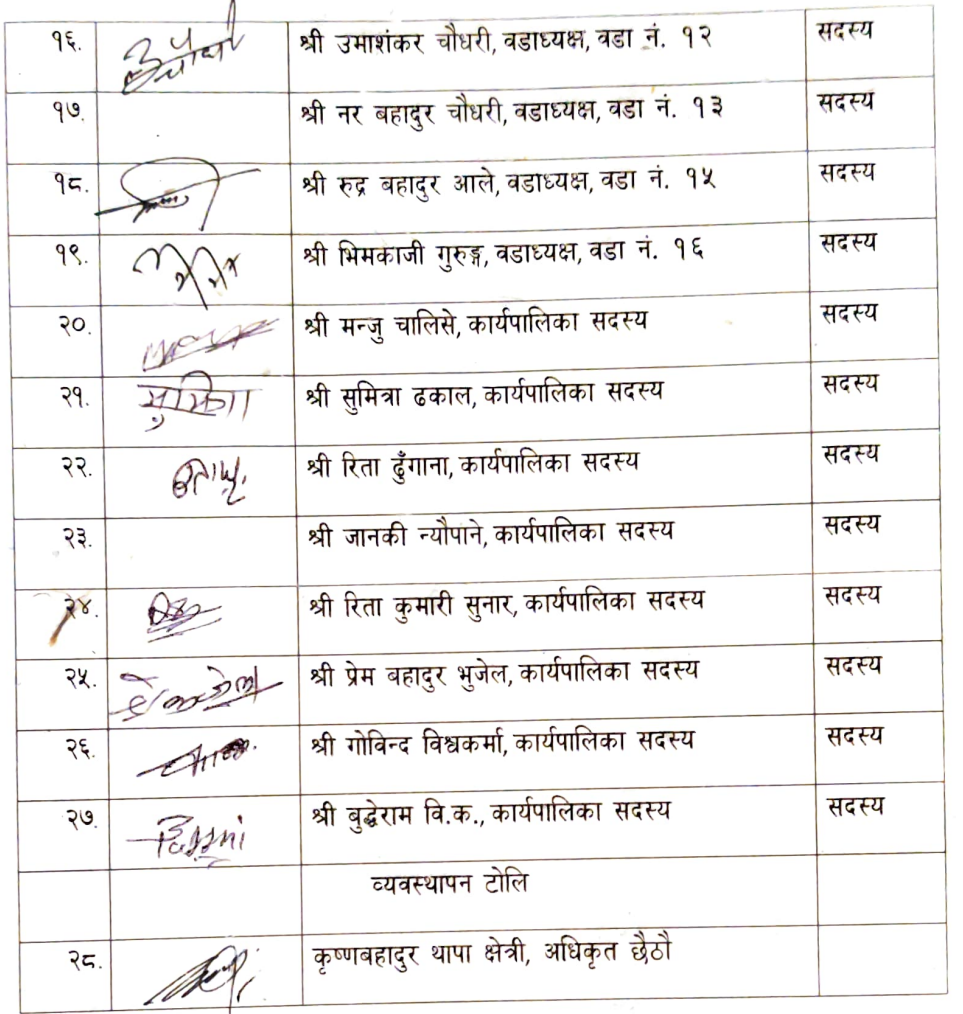 १६. श्री उमाशंकर चौधरी, वडाध्यक्ष, वडा नं. १२ सदस्य
१७. श्री नर बहादुर चौधरी, वडाध्यक्ष, वडा नं. १३ सदस्य
१८. श्री रुद्र बहादुर आले, वडाध्यक्ष, वडा नं. १५ सदस्य
१९. श्री भिमकाजी गुरुङ्ग, वडाध्यक्ष, वडा नं. १६ सदस्य
२०. श्री मन्जु चालिसे, कार्यपालिका सदस्य सदस्य
२१. सुमित्रा श्री सुमित्रा ढकाल, कार्यपालिका सदस्य सदस्य
२२. श्री रिता ढुँगाना, कार्यपालिका सदस्य सदस्य
२३. श्री जानकी न्यौपाने, कार्यपालिका सदस्य सदस्य
२४. श्री रिता कुमारी सुनार, कार्यपालिका सदस्य सदस्य
२५. श्री प्रेम बहादुर भुजेल, कार्यपालिका सदस्य सदस्य
२६. श्री गोविन्द विश्वकर्मा, कार्यपालिका सदस्य सदस्य
२७. श्री बुद्धेराम वि.क., कार्यपालिका सदस्य सदस्य
व्यवस्थापन टोलि
२८. कृष्णबहादुर थापा क्षेत्री, अधिकृत छैठौ